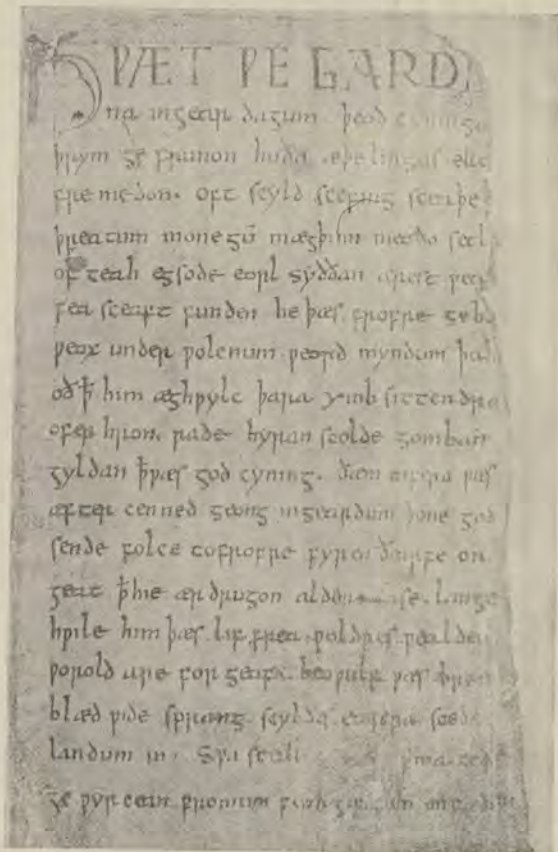 HǷÆT ǷE GARDE
na ingear dagum . þeod cyninga
þrym ge frunon huða æþelingas ellen
fremedon . oft scyld scefing sceaþen
þreatum monegū mægþum meodo setla
of teah egsode eorl syððan ærest ƿearð
fea sceaft funden he þæs frofre gebad
ƿeox under ƿolcnum ƿeorð myndum þah
oð ꝥ him æghƿylc þara ymb sittendra
ofer hron rade hyran scolde gomban
gyldan ꝥ ƿæs god cyning . ðæm eafera ƿæs
æfter cenned geong ingeardum þone god
sende folce tofrofre fyren ðearfe on
geat ꝥ hie ær drugon aldor ase . lange
hƿile him þæs lif frea ƿuldres ƿealdend
ƿorold are for geaf . beoƿulf ƿæs breme
blæd ƿide sprang scyldes eafera scede
landum in . Sƿa sceal
ge ƿyrcean fromum feoh giftum on fæder